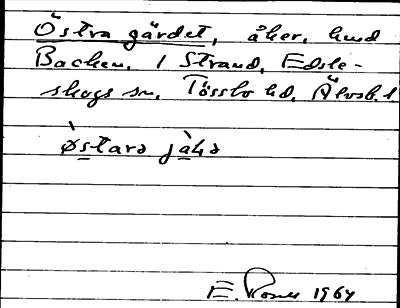 Östra gärdet, åker, hmd
Backen, 1 Strand, Edsle-
skogs sn, Tössbo hd, Älvsb. l.
østara jàḷa
E. 1964